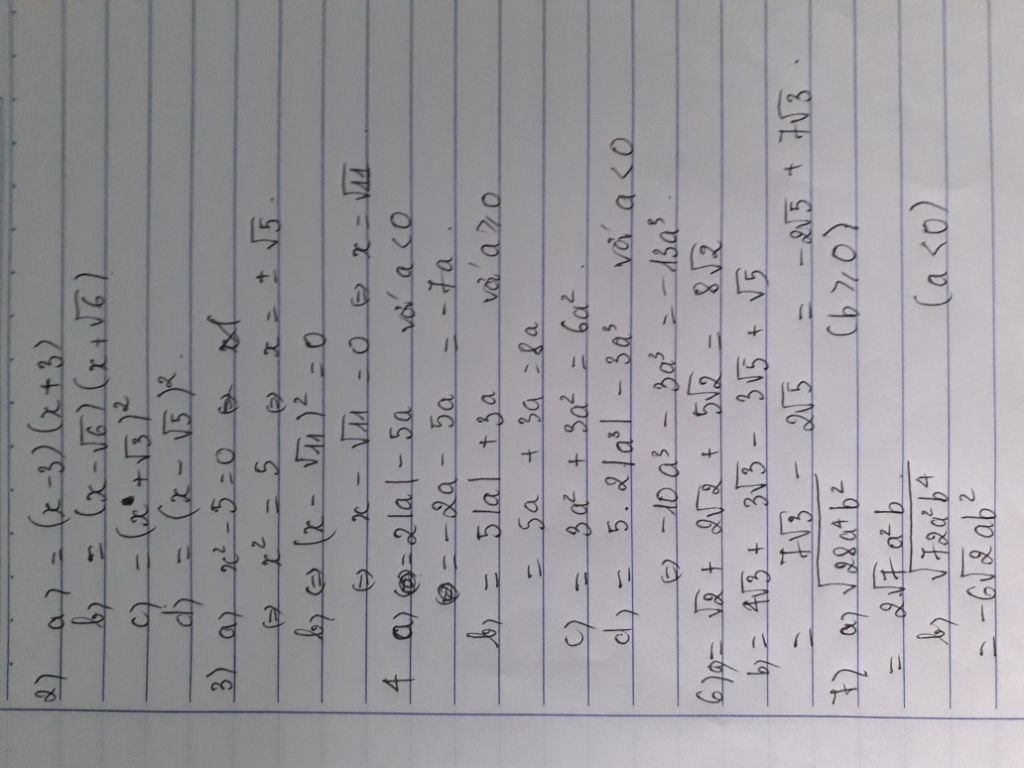 2) a) = (x-3)(x+3)
b) = (x-√6)(x+√6)
c) = (x+√3)²
d) = (x-√5)².
3) a) x²-5=0 ⇔
⇔ x² = 5 ⇔ x = ±√5.
b) ⇔ (x-√11)² = 0
⇔ x-√11 = 0 ⇔ x = √11
4 a) = 2|a| - 5a với a<0
= -2a - 5a = -7a.
b) = 5|a| + 3a với a≥0
= 5a + 3a = 8a
c) = 3a² + 3a² = 6a².
d) = 5.2|a³| - 3a³ với a<0
⇔ -10a³ - 3a³ = -13a³.
6) a) = √2 + 2√2 + 5√2 = 8√2
b) = 4√3 + 3√3 - 3√5 + √5
= 7√3 - 2√5 = -2√5 + 7√3.
7) a) √28a⁴b² (b≥0)
= 2√7a²b
b) √72a²b⁴ (a<0)
= -6√2ab²